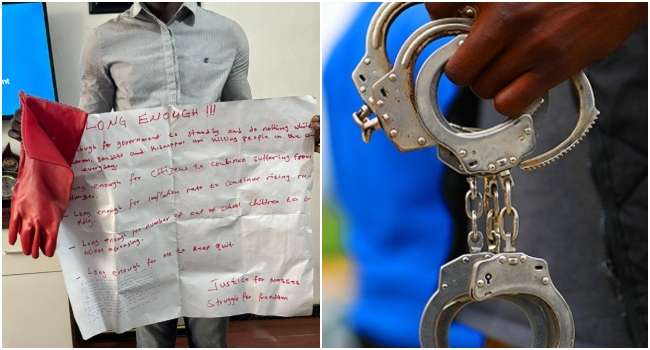 LONG ENOUGH !!!
ough for government to standby and do nothing while
and Kidnapper are killing people in the
everyday.
Long enough for Citizens to continue suffering from
hunger.
- Long enough for inflation rate to continue rising
- Long enough for number of out of school children to
when increasing.
- Long enough for me to keep quit
Justice for masses
Struggle for freedom